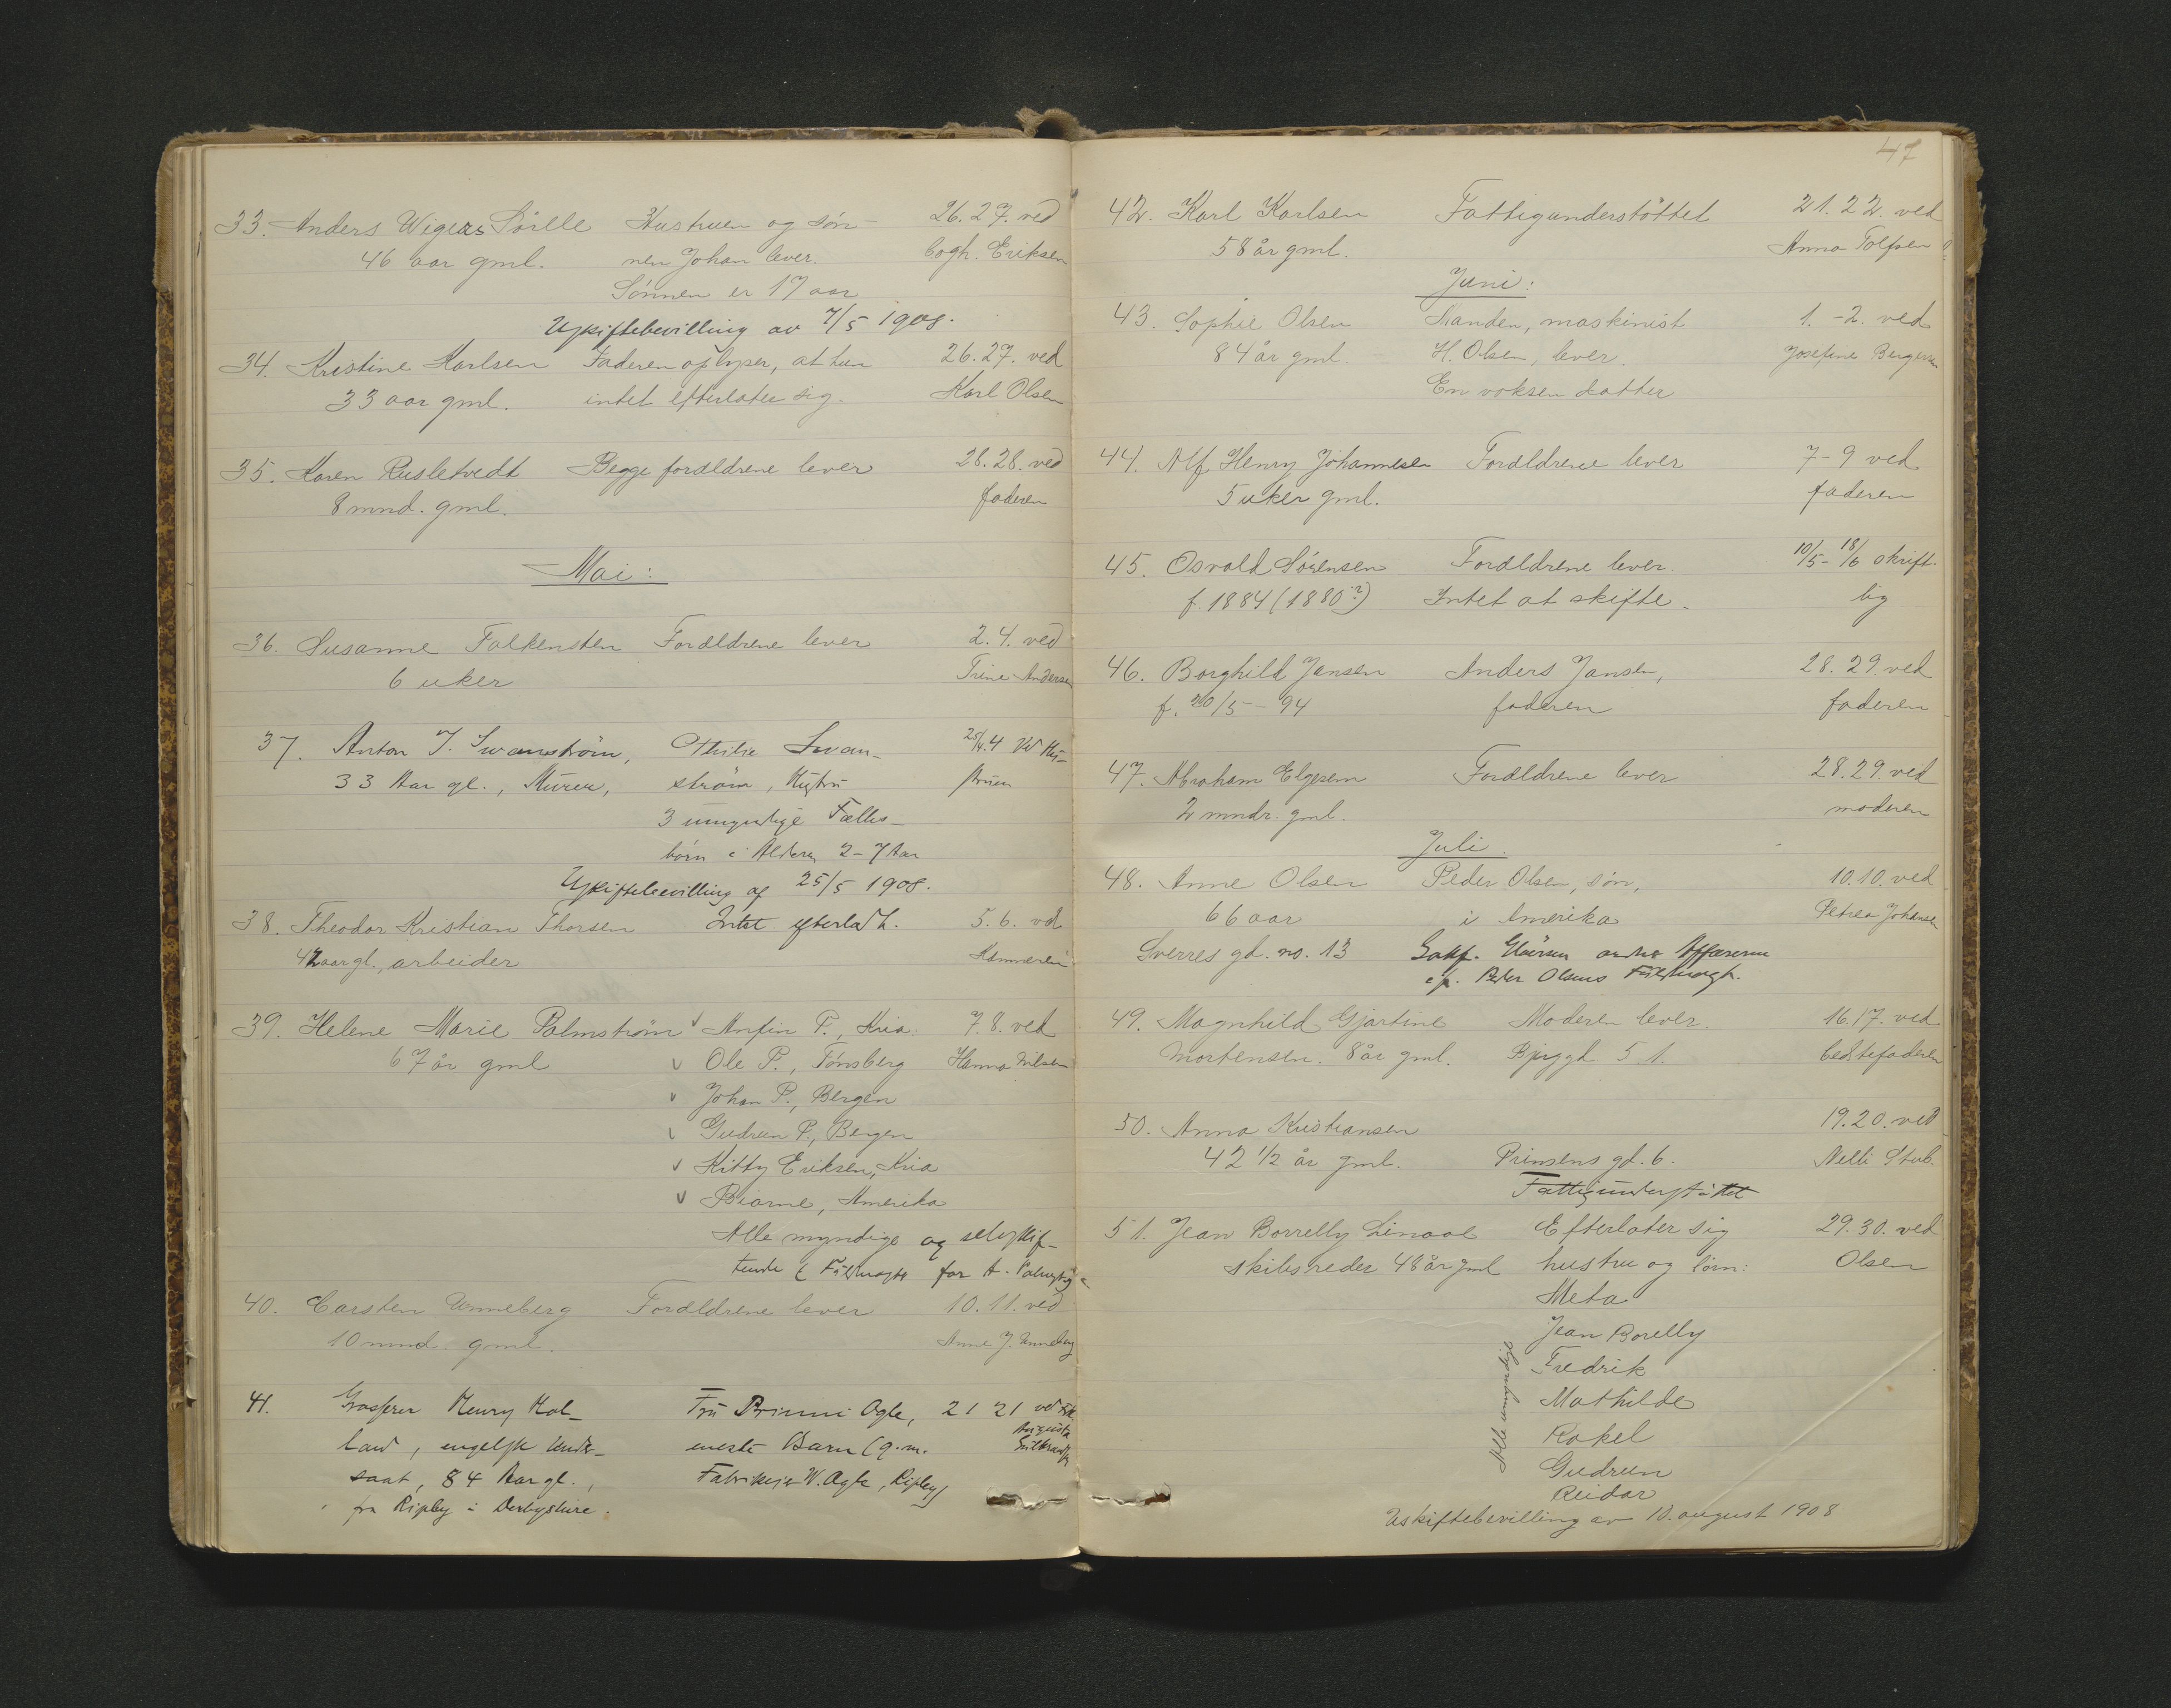 33. Anders Wigers Sørlle Hustruen og søn- 26.27. ved
46 aar gml. nen Johan lever. Bogh. Eriksen
Sønnen er 17 aar
Uskiftebevilling av 7/5 1908.
34. Kristine Karlsen Faderen oplyser, at hun 26.27. ved
33 aar gml. intet efterlater sig. Karl Olsen
35. Karen Rusletvedt Begge forældrene lever 28.28. ved
8 mnd. gml. faderen
Mai:
36. Susanne Falkensten Forældrene lever 2.4. ved
6 uker Trine Andersen
37. Anton J. Swanstrøm, Othilie Swan- 25/4.4 Ved Hu-
33 Aar gl., Murer, strøm, Hustru struen
3 umyndige Fælles-
børn i Alderen 2-7 Aar
Uskiftebevilling af 25/5 1908.
38. Theodor Kristian Thorsen Intet efterladt. 5.6. ved
42 aar gl., arbeider
39. Helene Marie Palmstrøm Anfin P., Kria. 7.8. ved
67 år gml Ole P., Tønsberg Hanna Nilsen
Johan P., Bergen
Gudrun P., Bergen
Kitty Eriksen, Kria
Bjarne, Amerika
Alle myndige og selvskif-
tende Fuldmagt for A.
40. Carsten Unneberg Forældrene lever 10.11. ved
10 mnd. gml. Anne J. Unneberg
41. Grosserer Henry Hol- Fru Ogle, 21 21 ved Frk
land, engelsk Under- eneste Barn (g.m. Augusta
saat, 84 Aar gl., Fabrikeier W. Ogle, Ripley)
fra Ripley i Derbyshire.
47
42. Karl Karlsen Fattigunderstøttet 21.22. ved
58 år gml. Anna Tolfsen
Juni:
43. Sophie Olsen Manden, maskinist 1.-2. ved
84 år gml. H. Olsen, lever. Josefine Bergersen
En voksen datter
44. Alf Henry Johannesen Forældrene lever 7-9 ved
5 uker gml. faderen
45. Osvald Sørensen Forældrene lever. 10/5-18/6 skrift-
f. 1884 (1880?) Intet at skifte. lig
46. Borghild Jansen Anders Jansen, 28.29. ved
f. 20/5-94 faderen faderen
47. Abraham Elgesem Forældrene lever 28.29. ved
2 mndr. gml. moderen
Juli.
48. Anne Olsen Peder Olsen, søn, 10.10. ved
66 aar i Amerika Petrea Johansen
Sverres gd. no. 13 Sakf. ordner Affærerne
Peder Olsens Fuldmagt.
49. Magnhild Gjartine Moderen lever. 16.17. ved
Mortensen. 8 år gml. Bjrggd 51. bedstefaderen
50. Anna Kristiansen 19.20. ved
42 1/2 år gml. Prinsens gd. 6. Nelli Stub.
Fattigunderstøttet
51. Jean Borrelly Linaae Efterlater sig 29.30. ved
skibsreder 48 år gml hustru og börn: Olsen
Meta
Jean Borelly
Fredrik
Mathilde
Rakel
Gudrun
Reidar
Alle umyndige
Uskiftebevilling av 10. august 1908